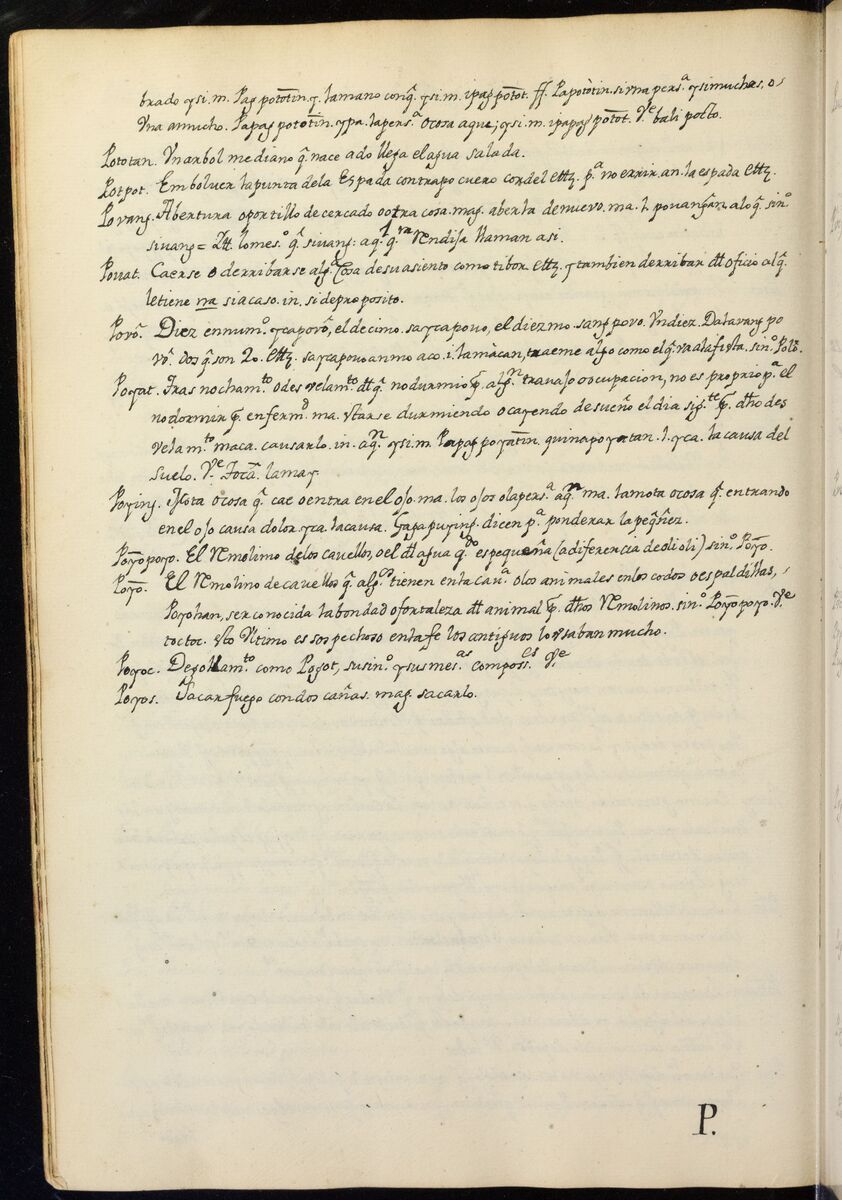 brado ysi.m. Pag potõtin. y. lamano conq̃. ysi.m. ipag potõt. ff. Papotòtin. si vna pers.ª ysi muchas, o
Vna amucho. Papag potõtin. ypa. lapers.ª ocosa aque; ysi.m. ipapag potõt. V.e bali pocto.
Pototan. Vn arbol mediano q̃. nace ado llega el agua salada.
Potpot. Emboluer lapunta dela Espada contrapo cuero cordel ettz. p.ª no errir. an. la espada ettz.
Povang. Abertura oportillo de cercado ootra cosa. mag. abertà denuevo. ma. l. povangãn. alo q̃. sin.º
sivang = Itt. lomes.º q̃. sivang: aq̃. q̃. Vendija llaman asi.
Pouat. Caerse o derribarse alg.ª Cosa desu asiento como tibor ettz. y tambien derribar dtt oficio alq̃.
letiene na si acaso. in. si deproposito.
Povõ. Diez ennum.º ycapovõ, el decimo. saycapouo, el diezmo. sang povo. Vndiez. Dalavang po
võ. dos q̃. son 20. ettz. saycapouo anmo aco. i. lamàcan, traeme algo como el q̃. va ala fiesta. sin.º Polõ.
Poyat. Trasnocham.to odesvelam.to dtt q̃. nodurmio alg.n travajo o ocupacion, no es proprio p.ª el
nodormir enferm.d ma. Vtarse durmiendo o cayendo de sueño el dia sig.te dtho des
velam.to maca. causarlo. in. aq.n ysi.m. Papag poyatin. quinapoyatan. l. yca. la causa del
suelo. V.e Focã. lamay.
Poying. Mota ocosa q̃. cae o entra en el ojo. ma. los ojos olapers.ª aq.n ma. lamota ocosa q̃. entrando
en el ojo causa dolor. yca. lacausa. Gaga puying. dicen p.ª ponderar la peq̃ñez.
Poyopoyo. El Remolino delos cauellos, o el dtt agua q.do es pequeña (a diferencia de olioli) sin.º Poyo.
Poyo. El Remolino de cavellos q̃. alg.os tienen en la cav.ª olos animales en los codos oespaldillas,
Poyohan, ser conocida labondad ofortaleza dtt animal dthos Remolinos. sin.º Poyopoyo. V.e
toctoc. Vso Vltimo es sospechoso enlafe los antiguos lo vsaban mucho.
Poyoc. Degollam.to como Pogot, su sin.º ysusmes.as composs.es V.e
Poyos. Sacar fuego condos cañas. mag. sacarlo.
P.